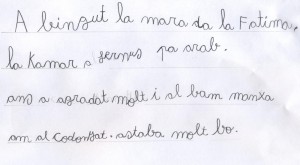 A bingut la mara da la Fatima,
la Kamar a fernus pa arab.
ans a agradat molt i al bam manxa
am al codonyat. astaba molt bo.